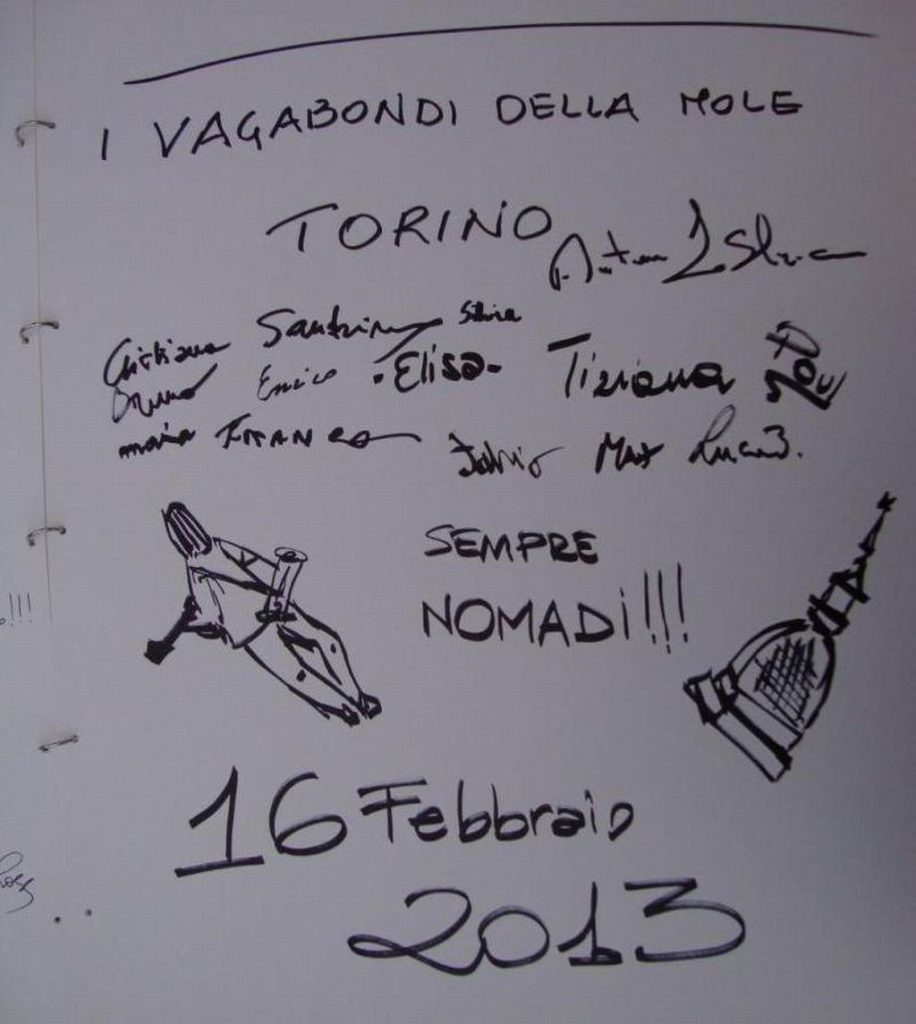 I VAGABONDI DELLA MOLE
TORINO
Cristiana Santina Silvia
Bruno Enrico Elisa Tiziana
maria FRANCO Fabrio Max Luca 3.
SEMPRE
NOMADi!!!
!!!
16 Febbraio
2013